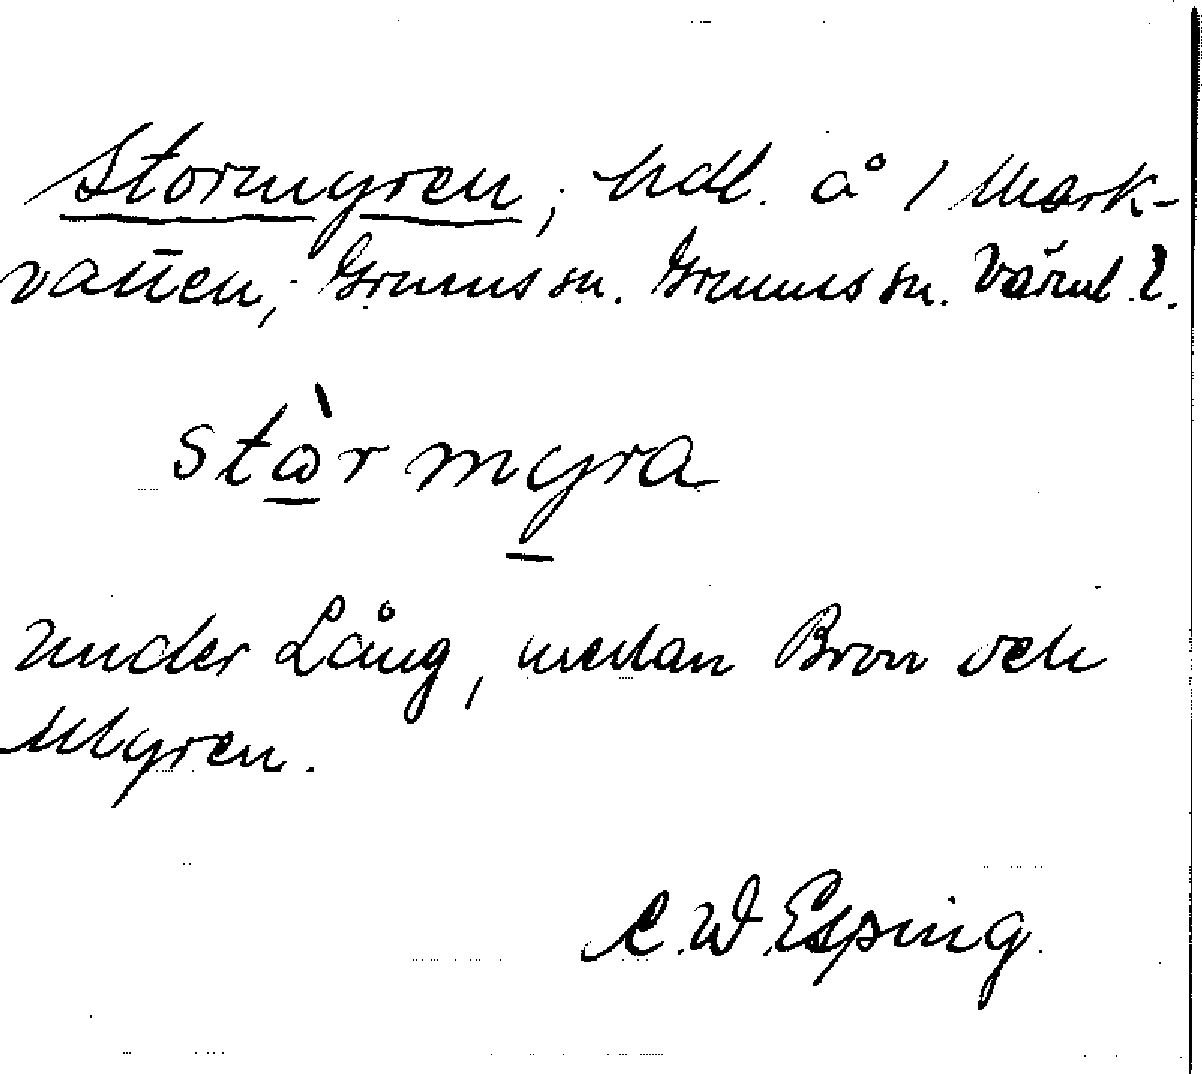 Stormyren, hdl. å 1 Mark-
vatten, Grums sn. Grums hd. Värml. l.
stωr myra
under Lång, mellan Bron och
Myren.
C. W. Esping.